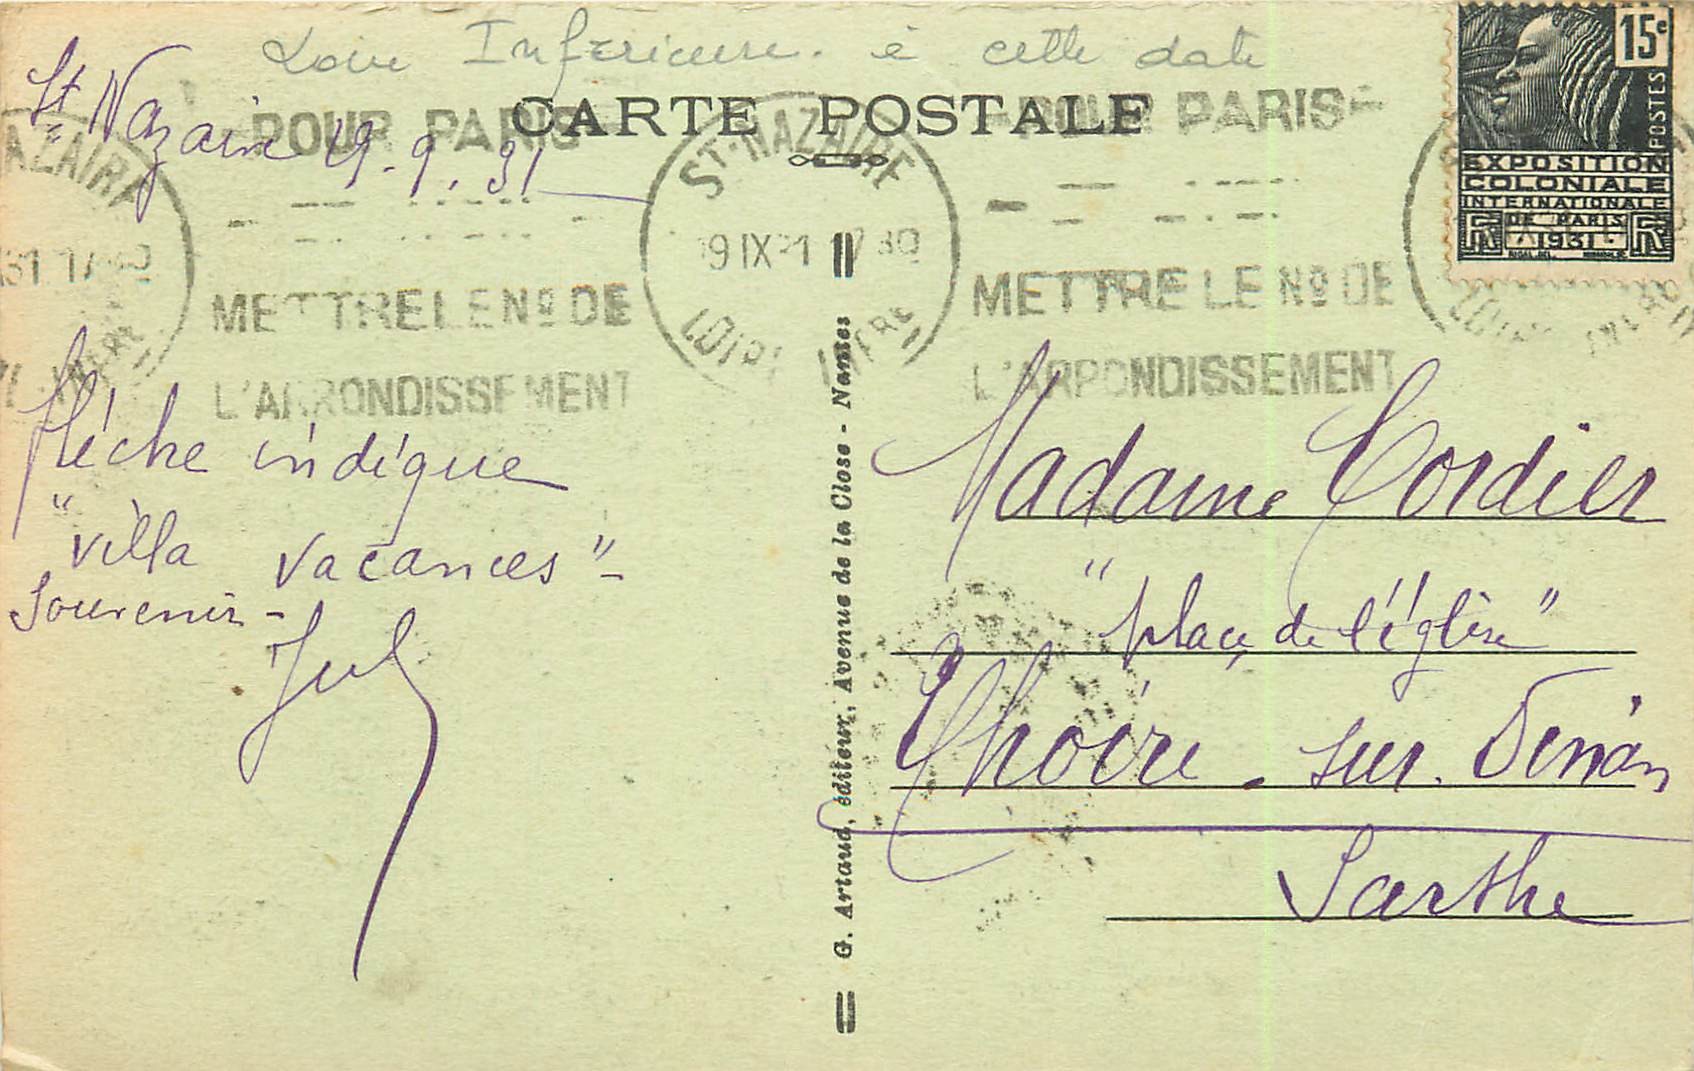 Loire Inférieure. à cette date
St Nazaire 19.9.31
CARTE POSTALE
POUR PARIS
POUR PARIS
ST-NAZAIRE
9 IX 31 17 30
LOIRE INFRE
METTRE LE No DE
L'ARRONDISSEMENT
METTRE LE No DE
L'ARRONDISSEMENT
15c
POSTES
EXPOSITION
COLONIALE
INTERNATIONALE
DE PARIS
1931
flèche indique
"villa vacances" -
Souvenir -
Jul
G. Artaud, éditeur, Avenue de la Close - Nantes
Madame Cordier
"place de l'église"
Thoiré. sur. Dinan
Sarthe